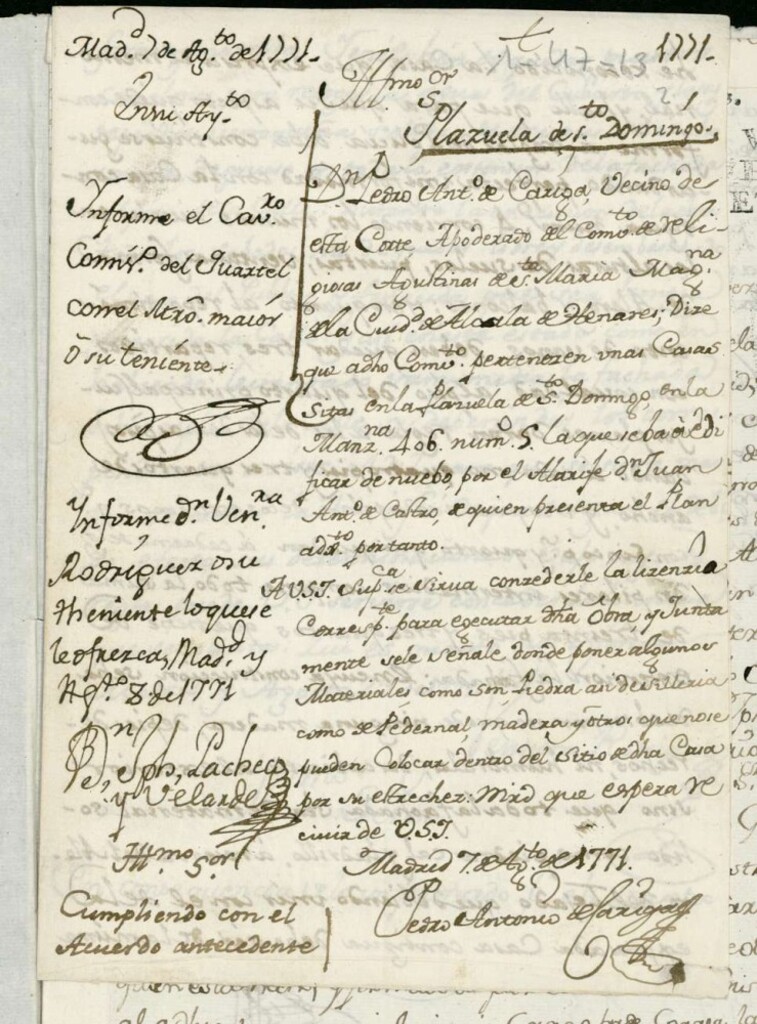 Mad.d 7 de Ag.to de 1771.
En su Ay.to
Ynforme el Cav.ro
Comis.o del Quartel
con el Mrō. maior
ō su teniente.
Ynforme D.n Ven.ra
Rodriguez o su
theniente lo que se
le ofrezca, Mad.d y
Ag.to 8 de 1771
D.n Jph, Pacheco
y Velarde
Ill.mo S.or
Cumpliendo con el
Acuerdo antecedente
1-47-13
1771.
21
Ill.mo S.or
Plazuela de S.to Domingo.
D.n Pedro Ant.o de Cariga, Vecino de
esta Corte, Apoderado del Comb.to de Reli-
giosas Agustinas de S.ta Maria Mag.na
de la Ciud.d de Alcala de Henares; Dize
que a dho Comb.to pertenezen unas Casas
Sitas en la Plazuela de S.to Domingo, en la
Manz.na 406. num.o 5. la que se ba à edi
ficar de nuebo, por el Alarife d.n Juan
Ant.o de Castro, de quien presenta el Plan
adj.to por tanto.
A V.S.I. Sup.ca se sirva conzederle la lizenzia
Corresp.te para egecutar dha Obra, y Junta
mente se le señale donde poner algunos
Materiales como son, Piedra asi de silleria
como de Pedernal, madera y otros que no se
pueden Colocar dentro del Sitio de dha Casa
por su estrechez: Mrd que espera re
civir de V.S.I.
Madrid 7. de Ag.to de 1771.
Pedro Antonio de Cariga